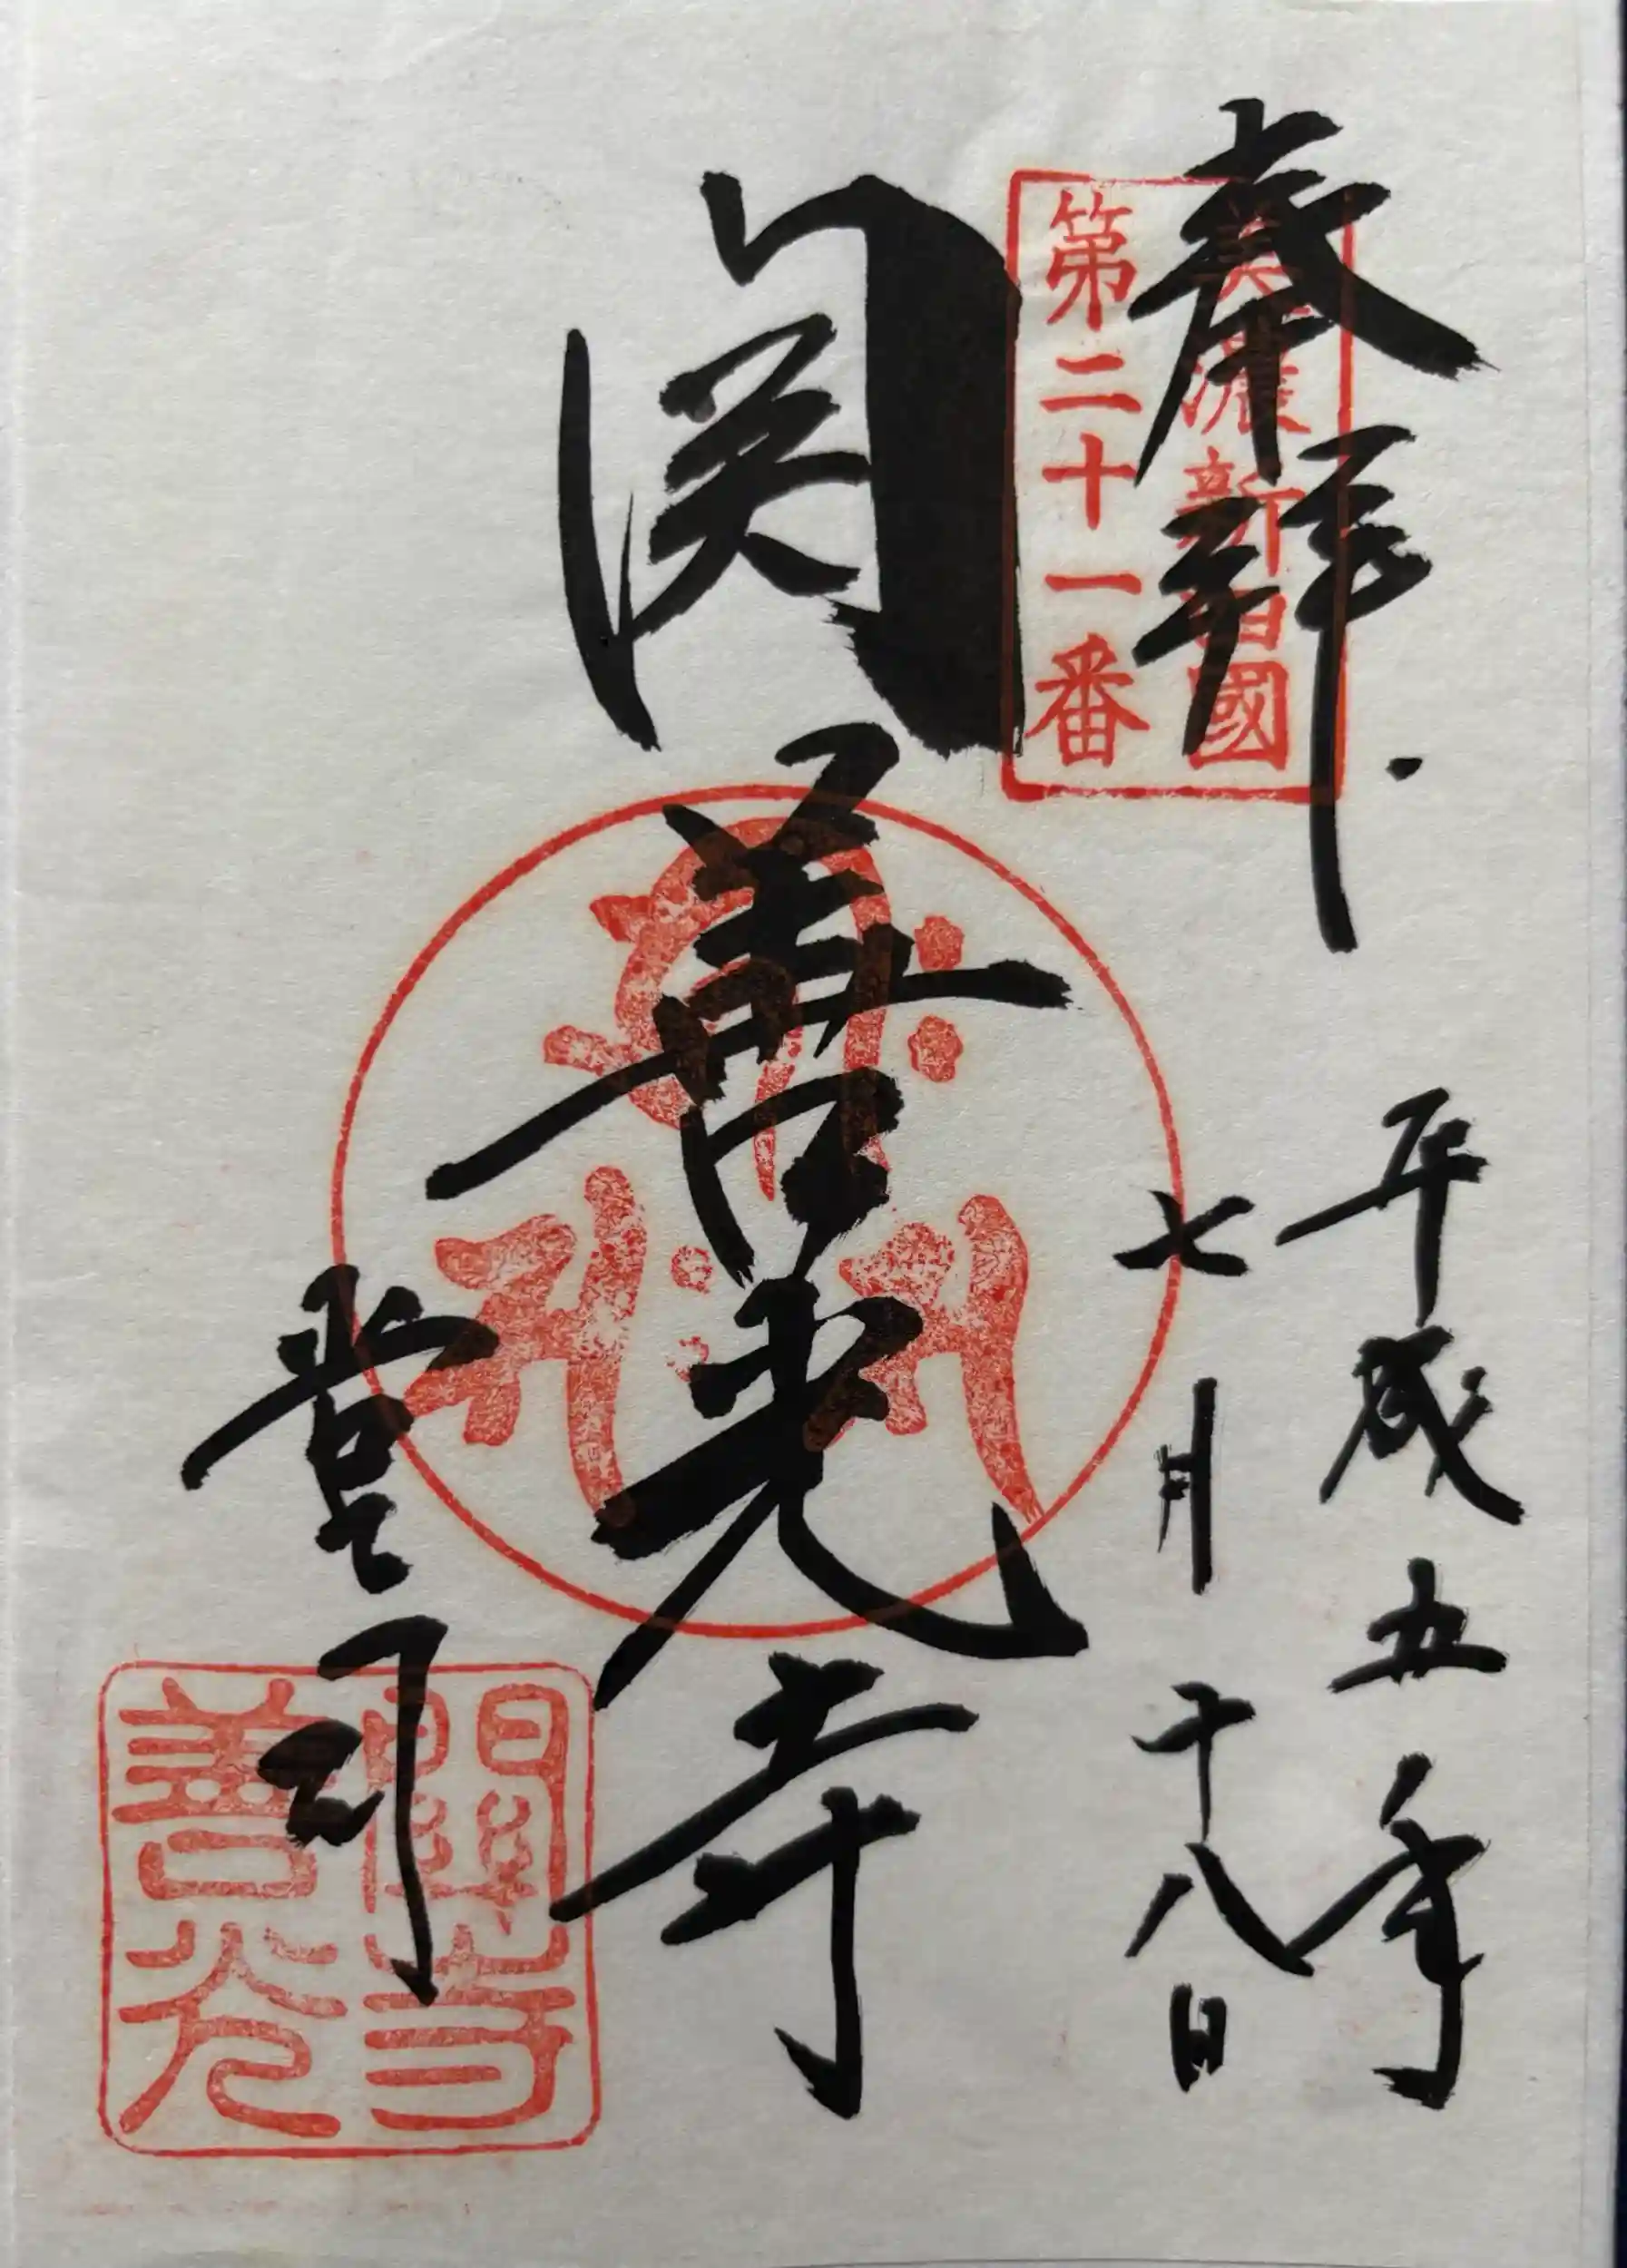 奉拝
美濃新西國
第二十一番
平成五年
七月十八日
関善光寺
堂司
關善光寺